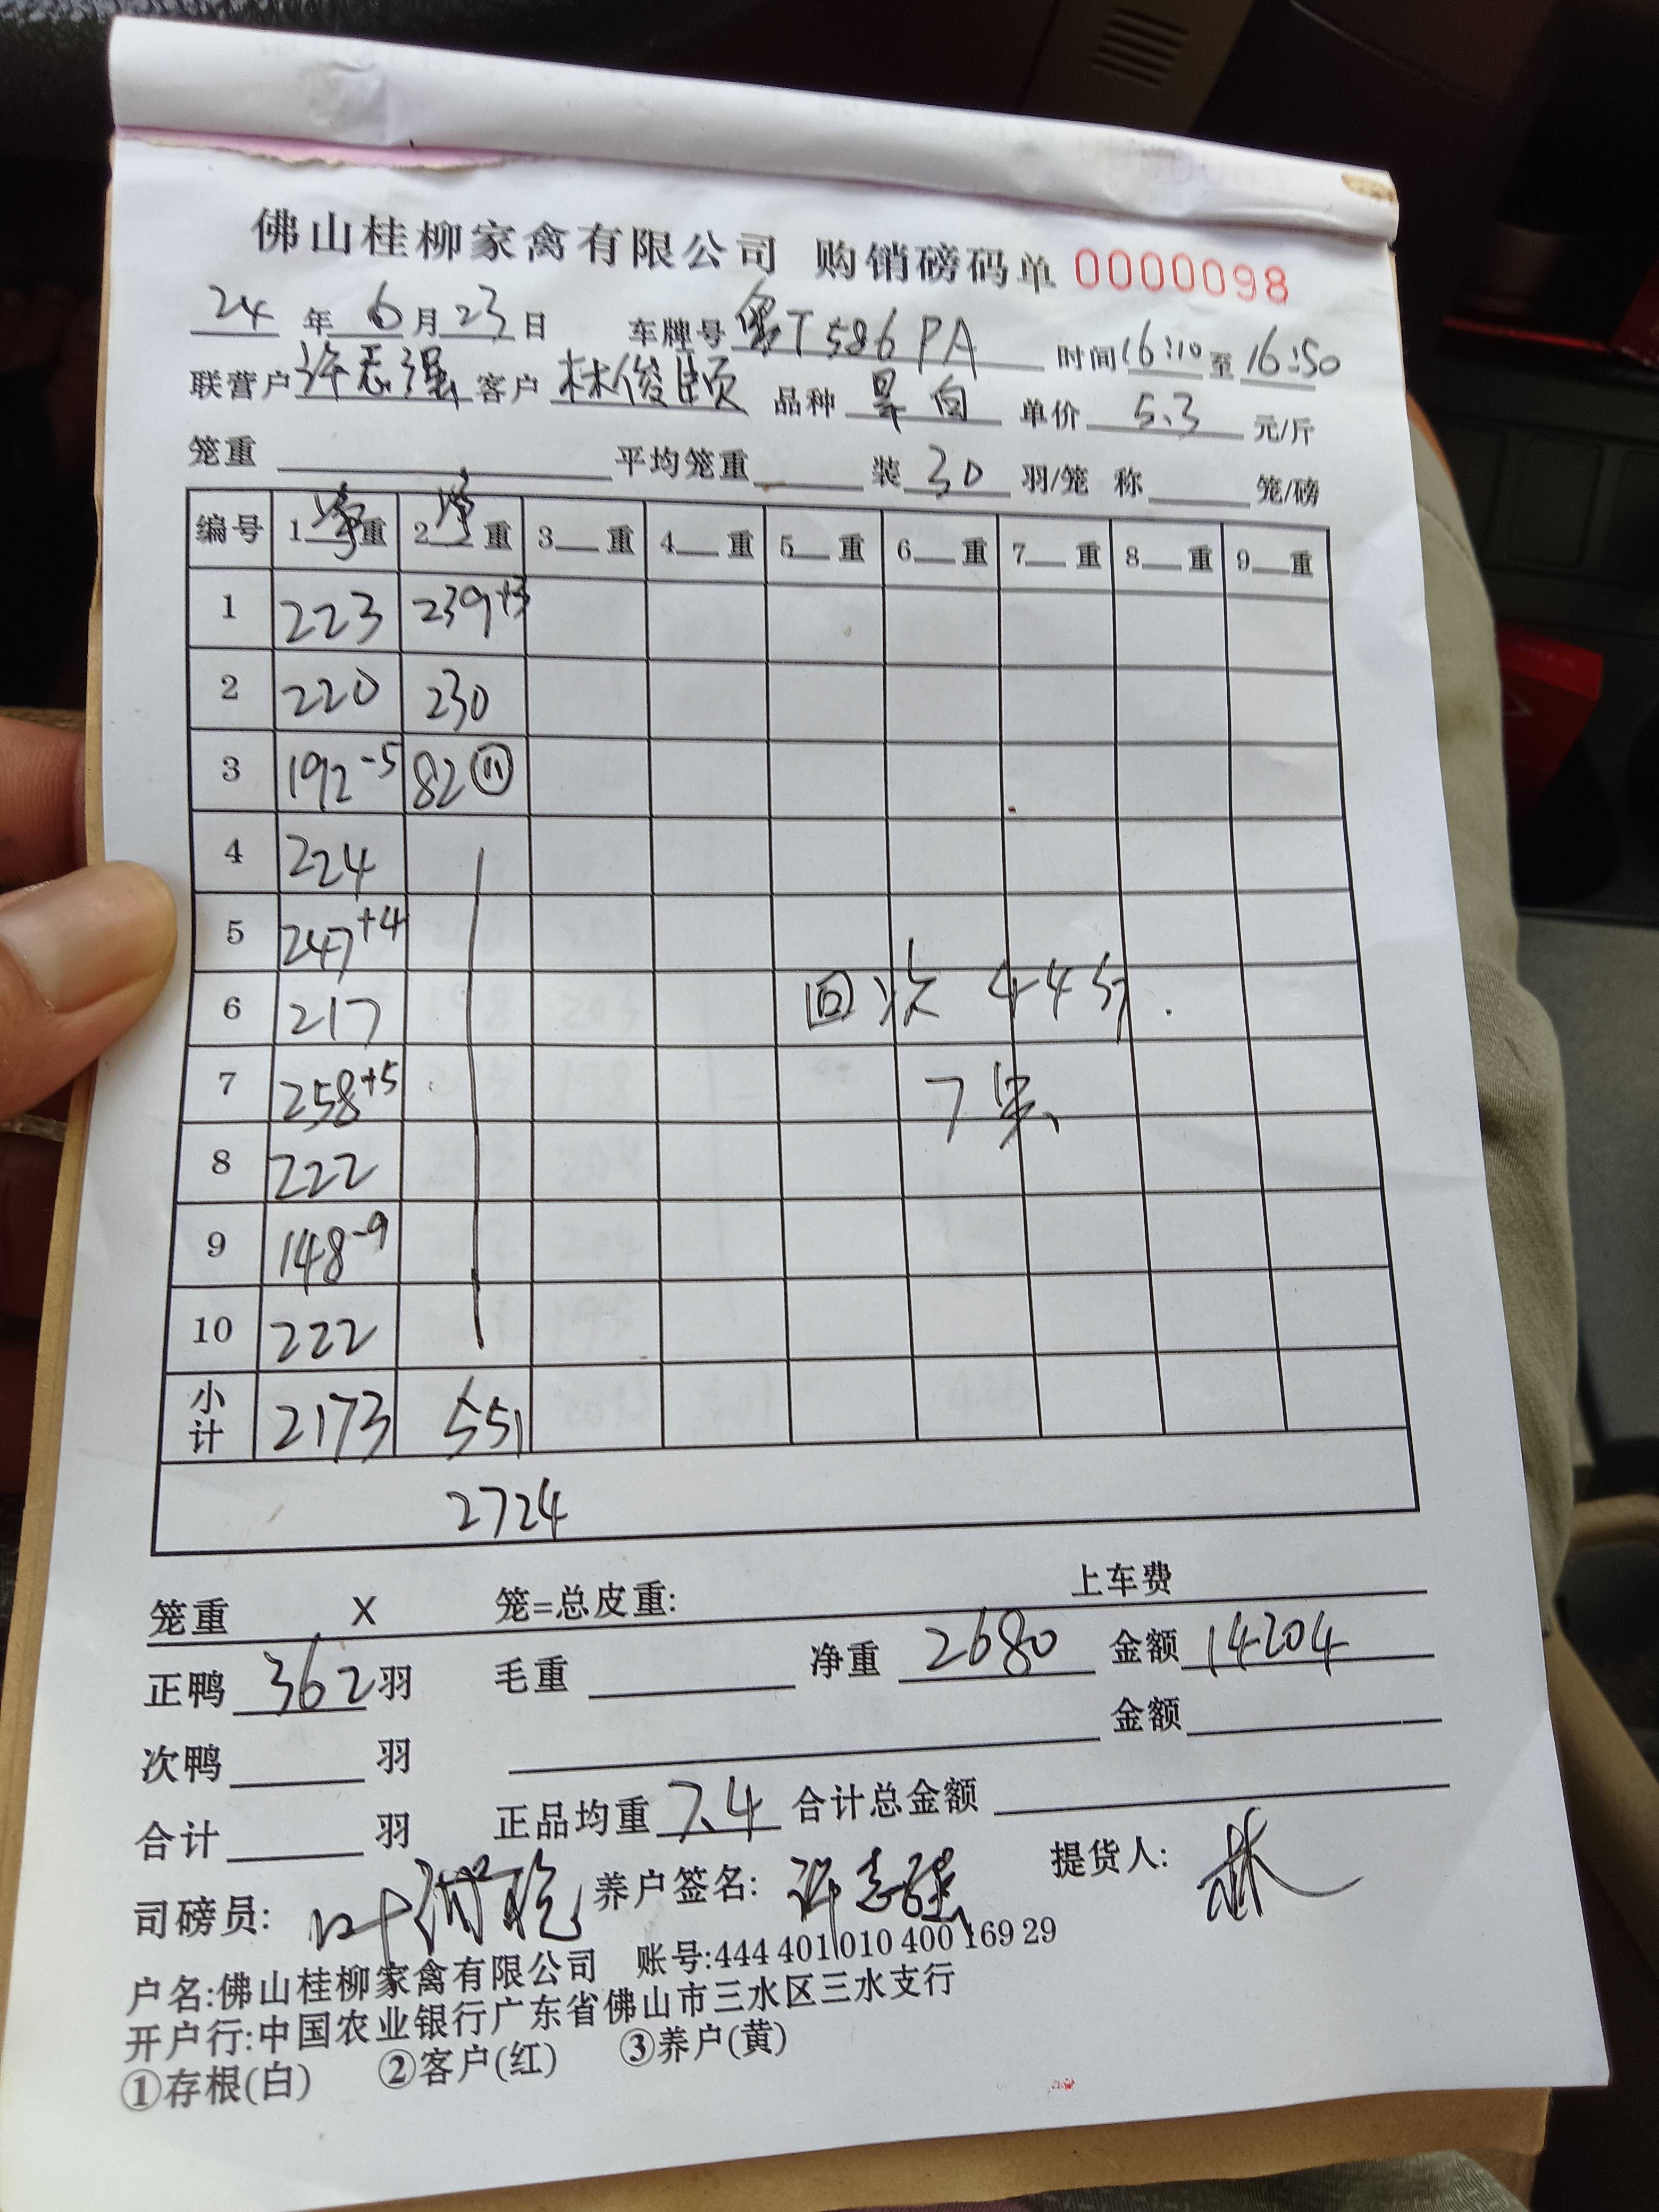 佛山桂柳家禽有限公司 购销磅码单 0000098
24年6月23日 车牌号粤T586PA 时间16:10至16:50
联营户许志强 客户 林俊颐 品种 旱白 单价 5.3 元/斤
笼重 平均笼重 装30羽/笼 称 笼/磅
编号 1净重 2净重 3 重 4 重 5 重 6 重 7 重 8 重 9 重
1 223 239+3
2 220 230
3 192-5 82⑪
4 224
5 247+4
6 217 回次 44斤.
7 258+5 7只
8 222
9 148-9
10 222
小计 2173 551
2724
上车费
笼重 X 笼=总皮重:
正鸭 362羽 毛重 净重 2680 金额14204
次鸭 羽 金额
合计 羽 正品均重7.4 合计总金额
司磅员: 叶 养户签名: 许志强 提货人: 林
户名:佛山桂柳家禽有限公司 账号:444 401 010 400 169 29
开户行:中国农业银行广东省佛山市三水区三水支行
①存根(白) ②客户(红) ③养户(黄)